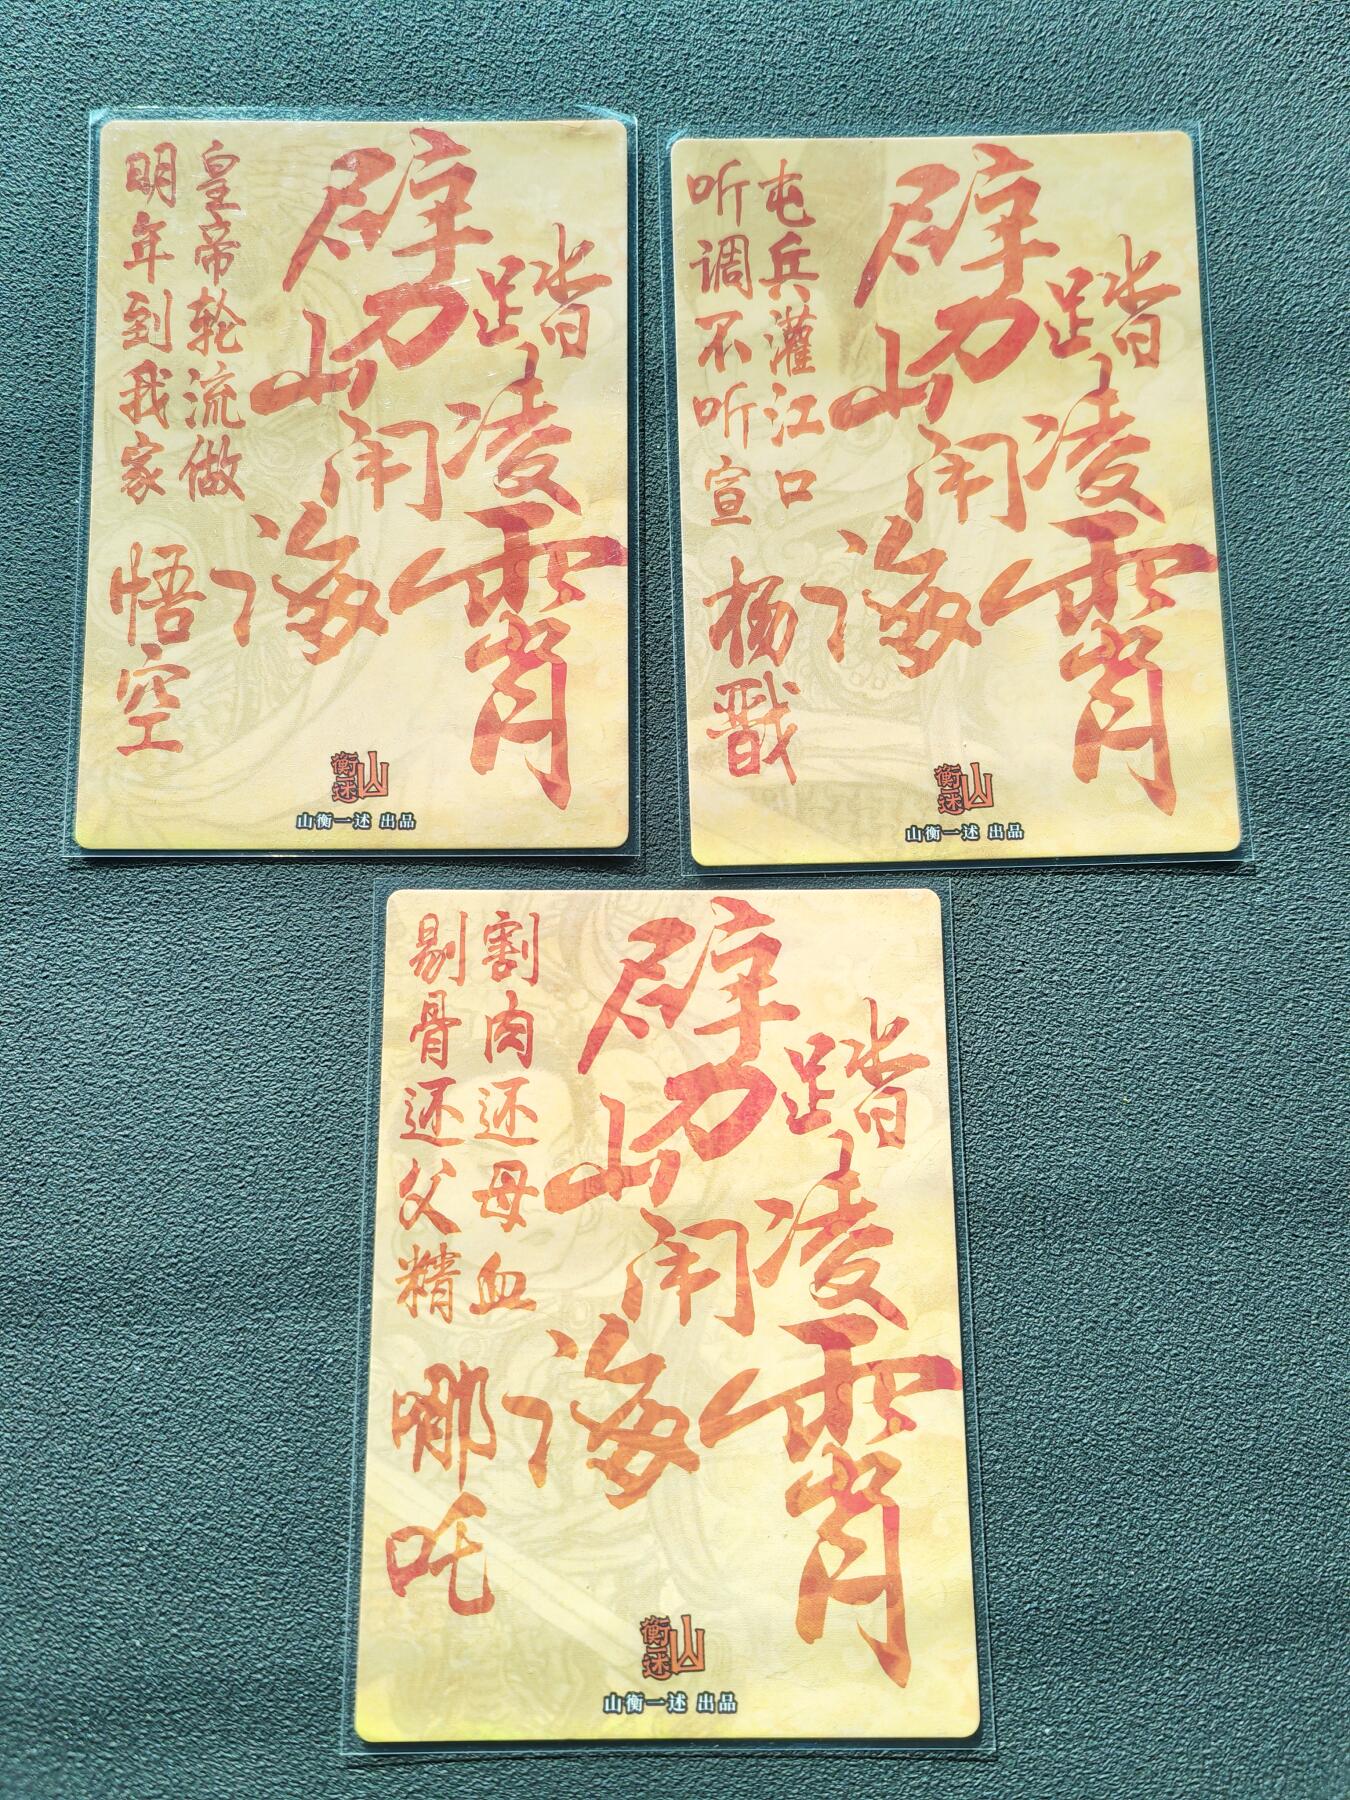 踏凌霄
劈山闹海
皇帝轮流做
明年到我家
悟空
衡山一述
山衡一述 出品
踏凌霄
劈山闹海
屯兵灌江口
听调不听宣
杨戬
衡山一述
山衡一述 出品
踏凌霄
劈山闹海
割肉还母血
剔骨还父精
哪吒
衡山一述
山衡一述 出品